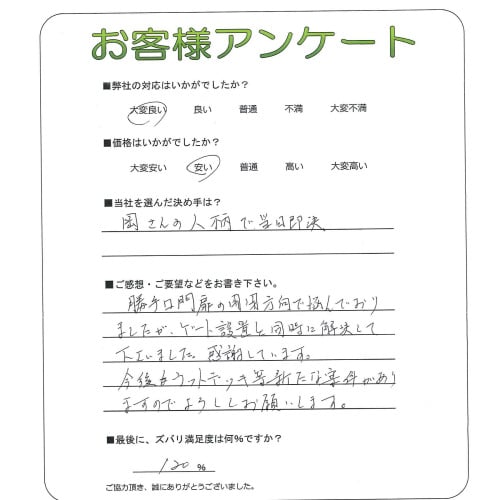 お客様アンケート
■弊社の対応はいかがでしたか？
大変良い 良い 普通 不満 大変不満
■価格はいかがでしたか？
大変安い 安い 普通 高い 大変高い
■当社を選んだ決め手は？
岡さんの人柄で当日即決
■ご感想・ご要望などをお書き下さい。
勝手口門扉の開閉方向で悩んでおり
ましたが、ゲート設置と同時に解決して
下さいました。感謝しています。
今後もウッドデッキ等新たな案件があり
ますのでよろしくお願いします。
■最後に、ズバリ満足度は何%ですか？
120 %
ご協力頂き、誠にありがとうございました。